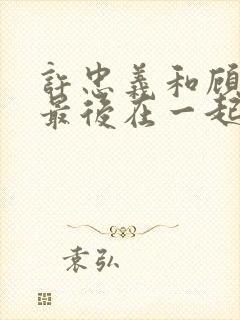 許忠義和顧
最後在一起
袁弘